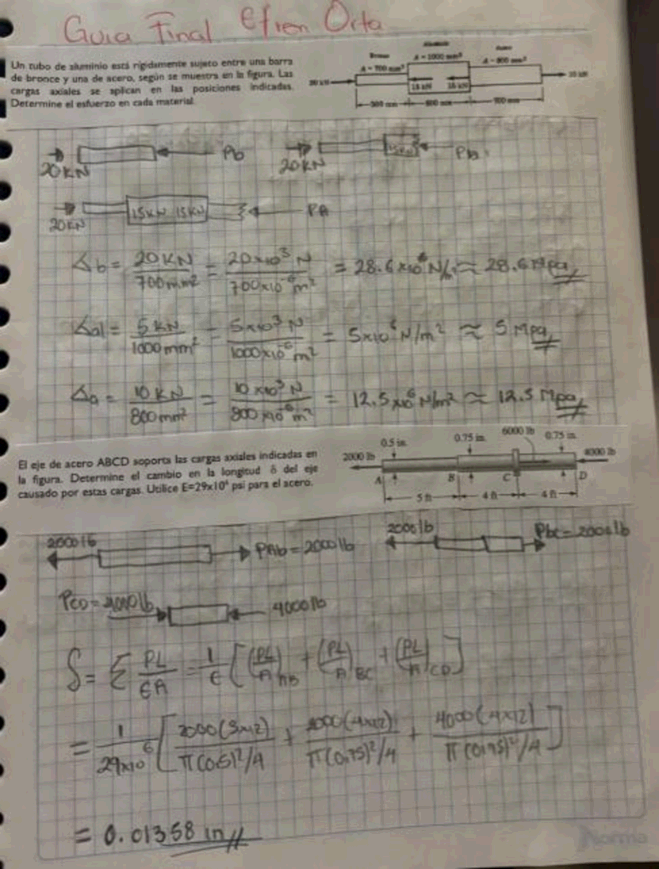 Guia Final Efren Orta
Un tubo de aluminio está rígidamente sujeto entre una barra
de bronce y una de acero, según se muestra en la figura. Las
cargas axiales se aplican en las posiciones indicadas.
Determine el esfuerzo en cada material.
Bronce
A = 700 mm²
A = 1000 mm²
A = 800 mm²
15 kN 15 kN 10 kN
500 mm 600 mm 700 mm
20KN Pb
20KN 15KN
20KN 15KN 15KN PA
Δb = 20 KN / 700 mm² = 20x10³ N / 700x10⁻⁶ m² = 28.6x10⁶ N/ ≈ 28.6 Mpa
Δal = 5 KN / 1000 mm² = 5x10³ N / 1000x10⁻⁶ m² = 5x10⁶ N/m² ≈ 5 Mpa
Δa = 10 KN / 800 mm² = 10x10³ N / 800x10⁻⁶ m² = 12.5x10⁶ N/m² ≈ 12.5 Mpa
El eje de acero ABCD soporta las cargas axiales indicadas en
la figura. Determine el cambio en la longitud δ del eje
causado por estas cargas. Utilice E=29x10⁶ psi para el acero.
0.5 in. 0.75 in. 6000 lb 0.75 in.
2000 lb 4000 lb
A B C D
5 ft 4 ft 4 ft
2000 lb PAb = 2000 lb
2000 lb Pbc = 2000 lb
PCD = 4000 lb 4000 lb
δ = Σ PL/EA = 1/E [(PL/A)AB + (PL/A)BC + (PL/A)CD]
= 1/29x10⁶ [2000(5x12)/π(0.5)²/4 + 2000(4x12)/π(0.75)²/4 + 4000(4x12)/π(0.75)²/4]
= 0.01358 in
Norma